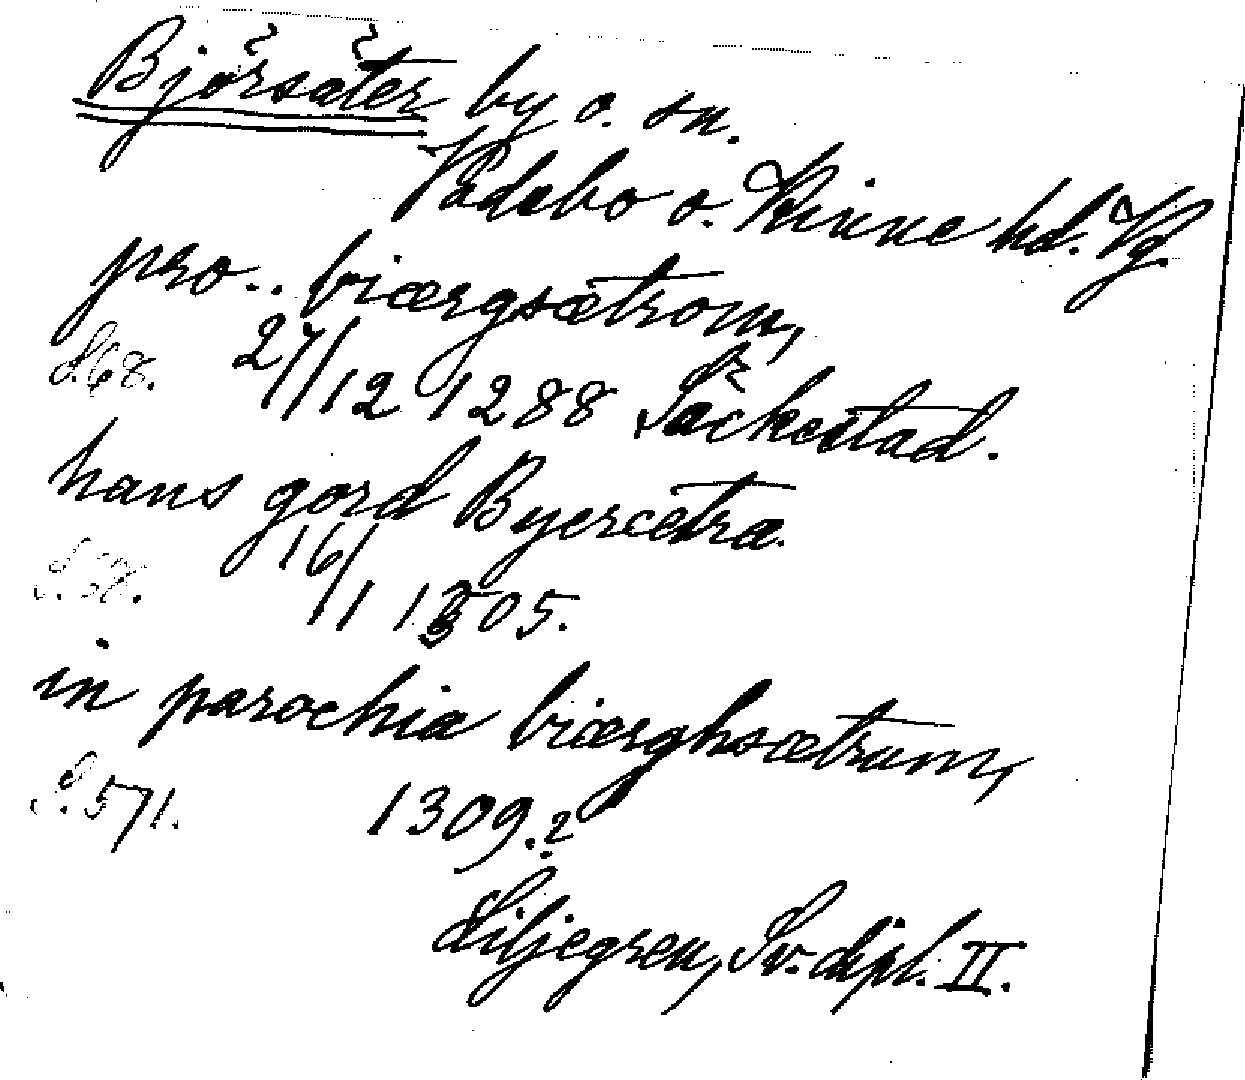 Björsäter by o. sn.
Vadsbo o. Kinne hd. Vg
pro.. biærgsætrom,
S. 68. 27/12 1288 Säckestad.
hans gord Byercetra.
S. 58. 16/1 1305.
in parochia biærghsætrum,
S. 571. 1309.?
Liljegren, Sv. dipl. II.